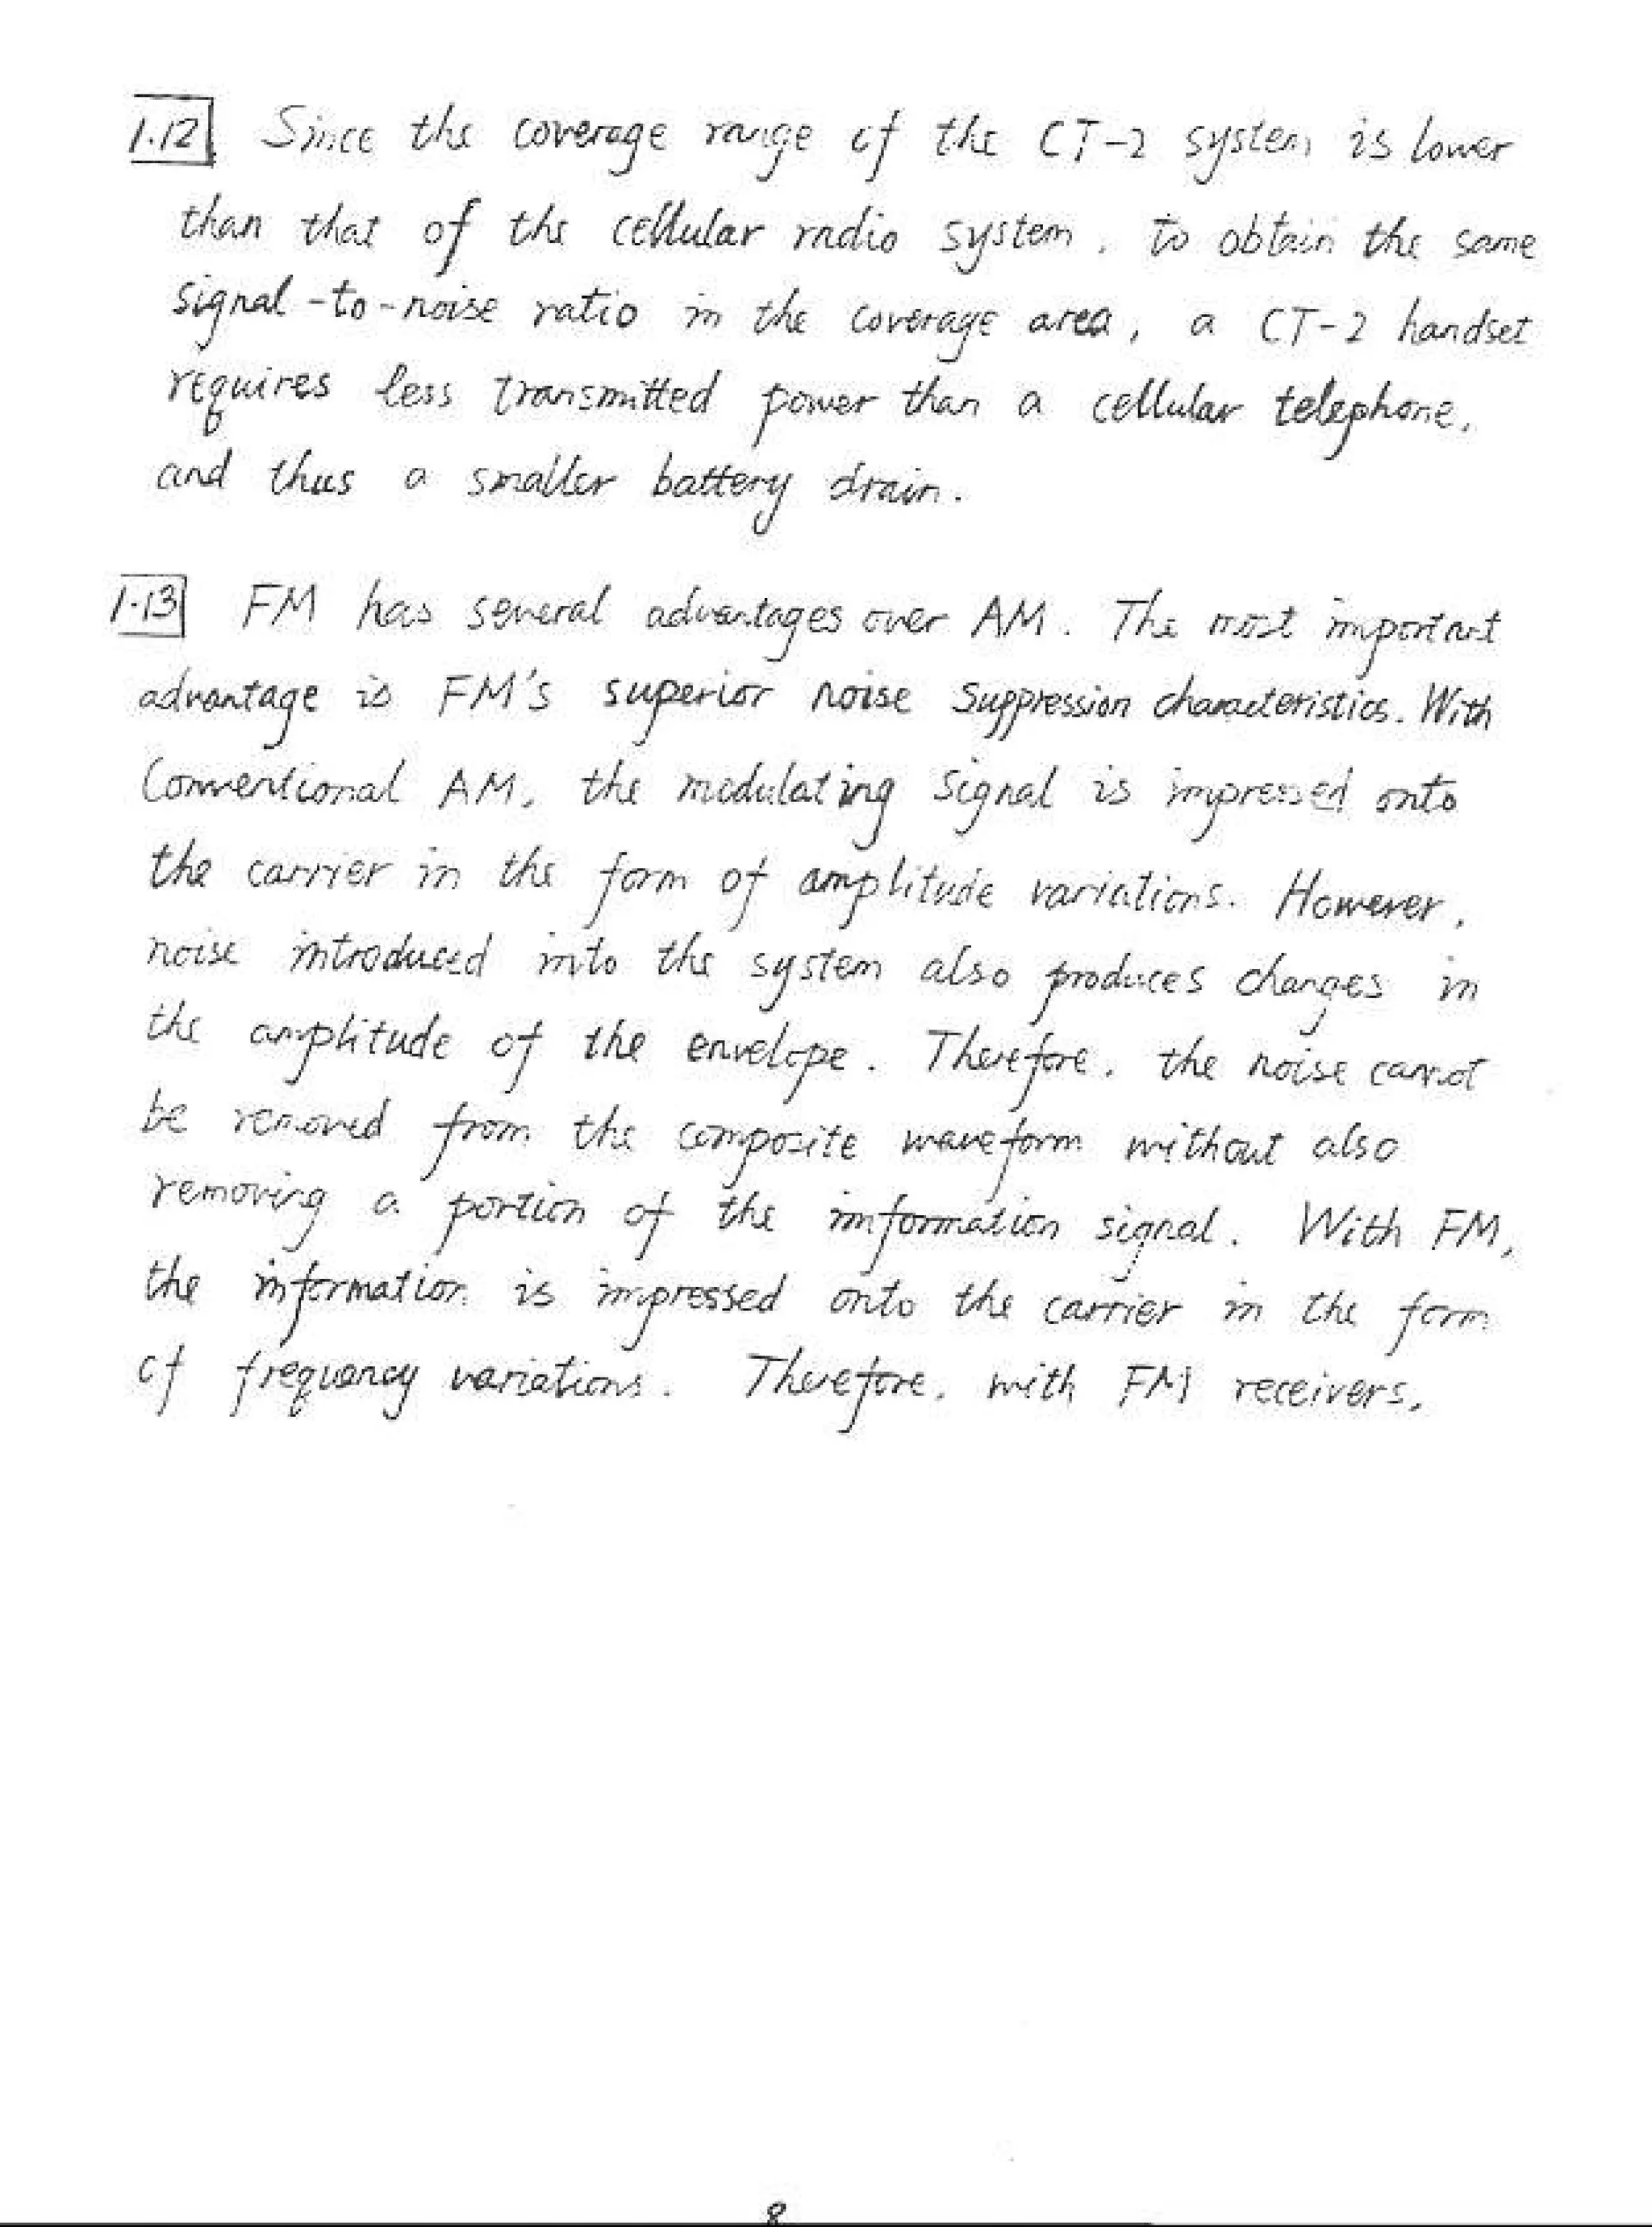 1.12 Since the coverage range of the CT-2 system is lower
than that of the cellular radio system, to obtain the same
signal-to-noise ratio in the coverage area, a CT-2 handset
requires less transmitted power than a cellular telephone,
and thus a smaller battery drain.
1.13 FM has several advantages over AM. The most important
advantage is FM's superior noise suppression characteristics. With
Conventional AM, the modulating signal is impressed onto
the carrier in the form of amplitude variations. However,
noise introduced into the system also produces changes in
the amplitude of the envelope. Therefore, the noise cannot
be removed from the composite waveform without also
removing a portion of the imformation signal. With FM,
the information is impressed onto the carrier in the form
of frequency variations. Therefore, with FM receivers,
8